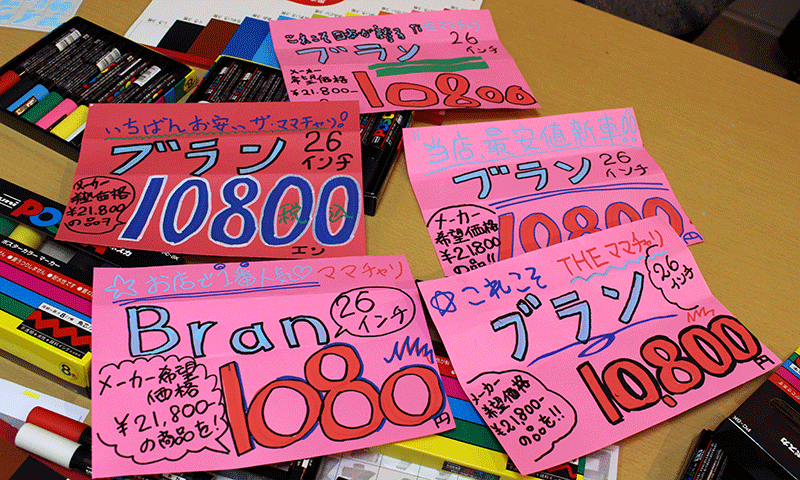 ブラン
26
インチ
メーカー
希望価格
¥21.800-
10800
いちばんお安いザ・ママチャリ!
ブラン
26
インチ
メーカー
希望価格
¥21.800
の品を
10800
税込
エン
当店、最安値新車!!
ブラン
26
インチ
メーカー
希望価格
¥21,800
の品を!!
10800
☆お店で1番人気♡ママチャリ
Bran
26
インチ
メーカー希望
価格
¥21,800-
の商品を!
1080
円
☆これこそ THEママチャリ
ブラン
26
インチ
メーカー
希望価格
¥21,800-
の品を!!
10,800
円
ポスターカラーマーカー
PC-8K